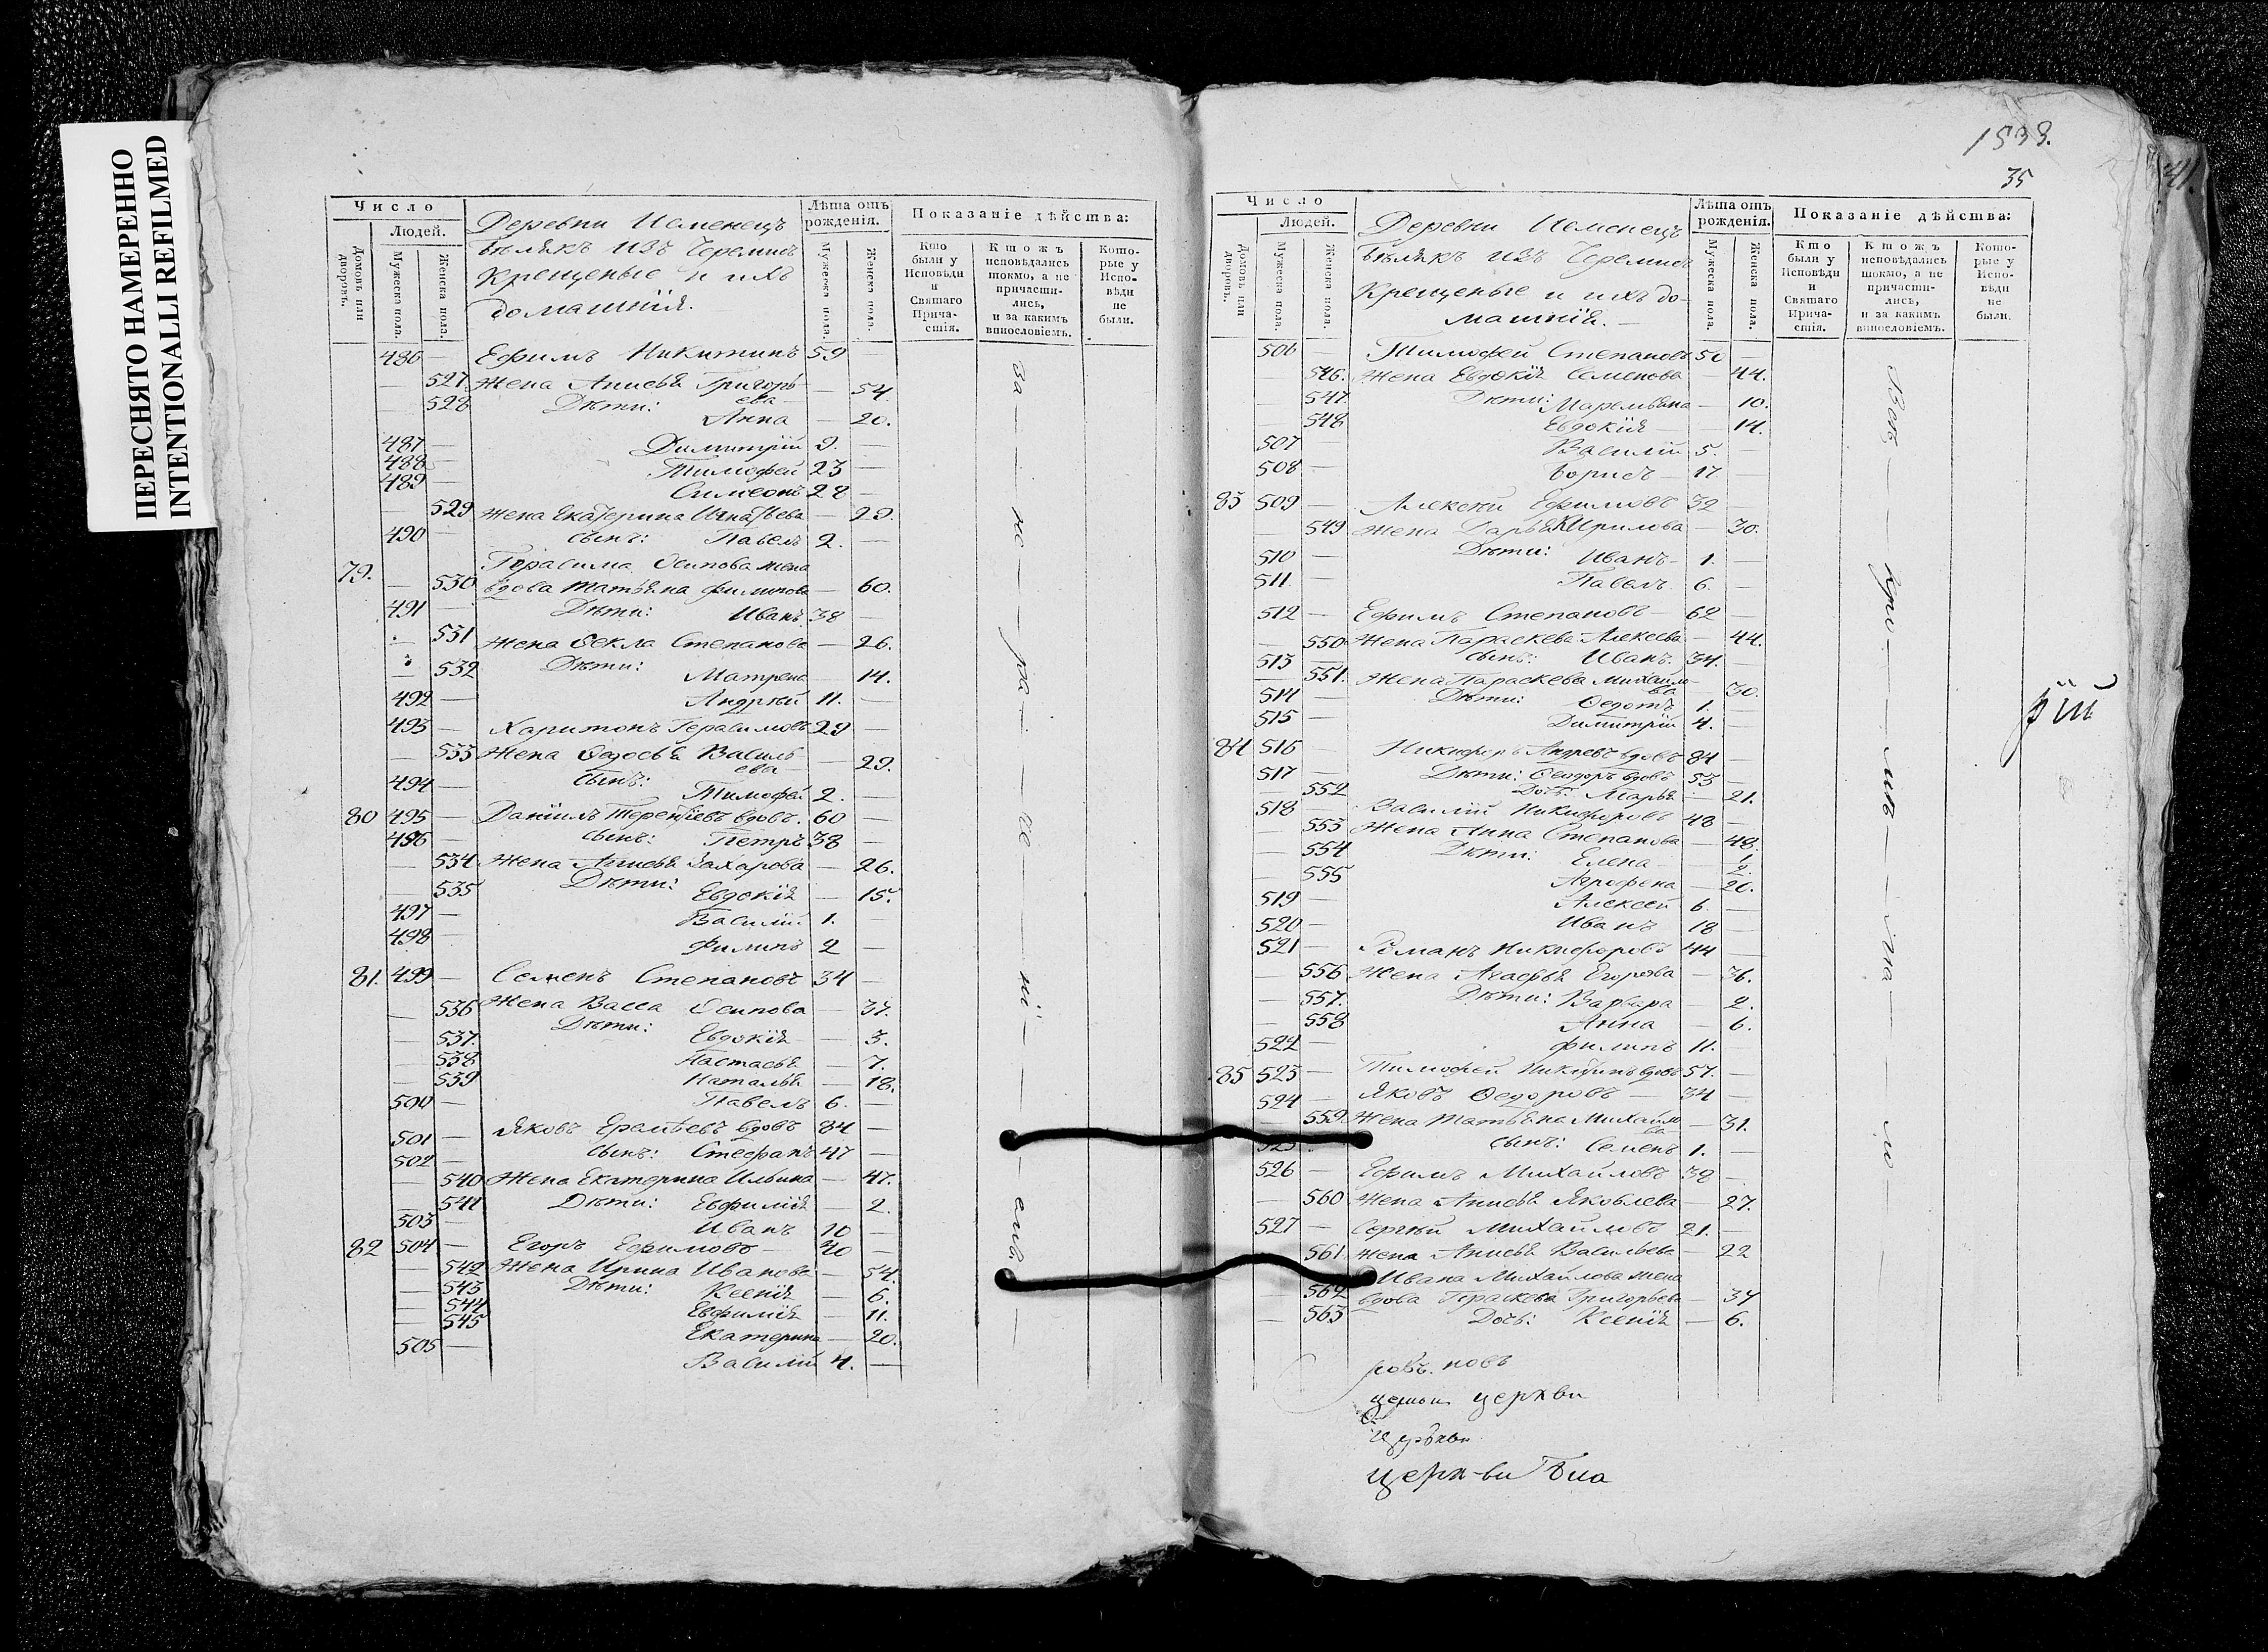 ПЕРЕСНЯТО НАМЕРЕННО
INTENTIONALLI REFILMED
Число
Людей.
Домовъ или дворовъ.
Мужеска пола.
Женска пола.
Деревни
изъ Черемисъ
Крещеные и ихъ
домашнія.
Лѣта отъ рожденія.
Мужеска пола.
Женска пола.
Показаніе дѣйства:
Кто были у Исповѣди и Святаго Причастія.
Ктожъ исповѣдались токмо, а не причастились, и за какимъ винословіемъ.
Которые у Исповѣди не были.
486 — Ефимъ Никитинъ 59
— 527 Жена Анисья Григорьева — 54.
528 Дѣти: Анна — 20.
487 — Димитрій 9.
488 — Тимофей 23 —
489 — Симеонъ 28 —
— 529 Жена Екатерина Игнатьева — 29.
490 — сынъ: Павелъ 2. —
79. Герасима Осипова жена
— 530 вдова Татьяна Филипова — 60.
491 — Дѣти: Иванъ 38 —
— 531 Жена Ѳекла Степанова — 26.
— 532 Дѣти: Матрена — 14.
492 — Андрей 11. —
493 — Харитонъ Герасимовъ 29 —
— 533 Жена Ѳедосья Васильева — 29.
494 — сынъ: Тимофей 2. —
80 495 — Даніилъ Терентіевъ вдовъ. 60 —
496 — сынъ: Петръ 38 —
— 534 Жена Анисья Захарова — 26.
— 535 Дѣти: Евдокія — 15.
497 — Василій 1. —
498 — Филипъ 2 —
81. 499 — Семенъ Степановъ 34 —
— 536 Жена Васса Осипова — 37.
Дѣти:
— 537. Евдокія — 3.
— 538 Настасья — 7.
— 539 Наталья — 18.
500 — Павелъ 6. —
501 — Яковъ вдовъ 84 —
502 — сынъ: Стефанъ 47 —
— 540 Жена Екатерина Ильина — 47.
— 541 Дѣти: Евфимія — 2.
503 — Иванъ 10 —
82 504 — Егоръ Ефимовъ 40 —
— 542 Жена Ирина Иванова — 54.
— 543 Дѣти: Ксенія — 6.
— 544 Евфимія — 11.
— 545 Екатерина — 20.
505 — Василій 4. —
1833.
35
Число
Людей.
Домовъ или дворовъ.
Мужеска пола.
Женска пола.
Деревни
изъ Черемисъ
Крещеные и ихъ до-
машнія. —
Лѣта отъ рожденія.
Мужеска пола.
Женска пола.
Показаніе дѣйства:
Кто были у Исповѣди и Святаго Причастія.
Ктожъ исповѣдались токмо, а не причастились, и за какимъ винословіемъ.
Которые у Исповѣди не были.
506 — Тимофей Степановъ 50 —
— 546. Жена Евдокія Семенова — 44.
— 547. Дѣти: — 10.
— 548 Евдокія — 14.
507 — Василій 5. —
508 — Борисъ 17 —
83 509 — Алексѣй Ефимовъ 32 —
— 549 Жена Дарья Кирилова — 30.
510 — Дѣти: Иванъ 1. —
511 — Павелъ 6. —
512 — Ефимъ Степановъ 62 —
— 550 Жена Параскева Алексеева — 44.
513 — сынъ: Иванъ 34. —
— 551. Жена Параскева Михайлова — 30.
514 — Дѣти: Ѳедотъ 1. —
515 — Димитрій 4. —
84 516 — Никифоръ Андреевъ вдовъ 84 —
517 — Дѣти: Ѳеодоръ вдовъ 53 —
— 552 Дочь: Марья — 21.
518 — Василій Никифоровъ 48 —
— 553 Жена Анна Степанова — 48.
— 554 Дѣти: Елена
— 555 Агрофена — 20.
519 — Алексей 6. —
520 — Иванъ 18 —
521 — Романъ Никифоровъ 44 —
— 556 Жена Агафья Егорова — 36.
— 557. Дѣти: Варвара — 2.
— 558 Анна — 6.
522 — Филипъ 11. —
85 523 — Тимофей Никитинъ вдовъ 57. —
524 — Яковъ Ѳедоровъ — 34 —
— 559 Жена Татьяна Михайлова — 31.
525 сынъ: Семенъ 1. —
526 — Ефимъ Михайловъ 38 —
— 560 Жена Анисья Яковлева — 27.
527 — Сергѣй Михайловъ 21. —
— 561. Жена Анисья Васильева — 22
Ивана Михайлова жена
— 562 вдова Параскева Григорьева — 34
— 563 Дочь: Ксенія — 6.
ровъ. новъ
церкви
церкви